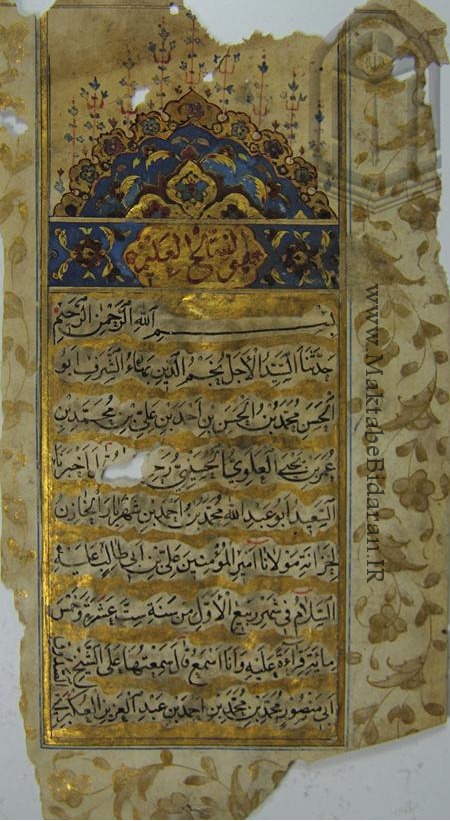 هو الفتاح العليم
بسم الله الرحمن الرحیم
حدثنا السید الاجل نجم الدین بهاء الشرف ابو
الحسن محمد بن الحسن بن احمد بن علی بن محمد بن
عمر بن یحیی العلوی الحسینی رحمه اخبرنا
السعید ابو عبد الله محمد بن احمد بن شهریار الخازن
لخزانة مولانا امیر المؤمنین علی بن ابی طالب علیه
السلام فی شهر ربیع الاول من سنة ست عشرة وخمس
مائة قراءة علیه وانا اسمع قال سمعتها علی الشیخ
ابی منصور محمد بن محمد بن احمد بن عبد العزیز العکبری
www.MaktabeBidaran.IR